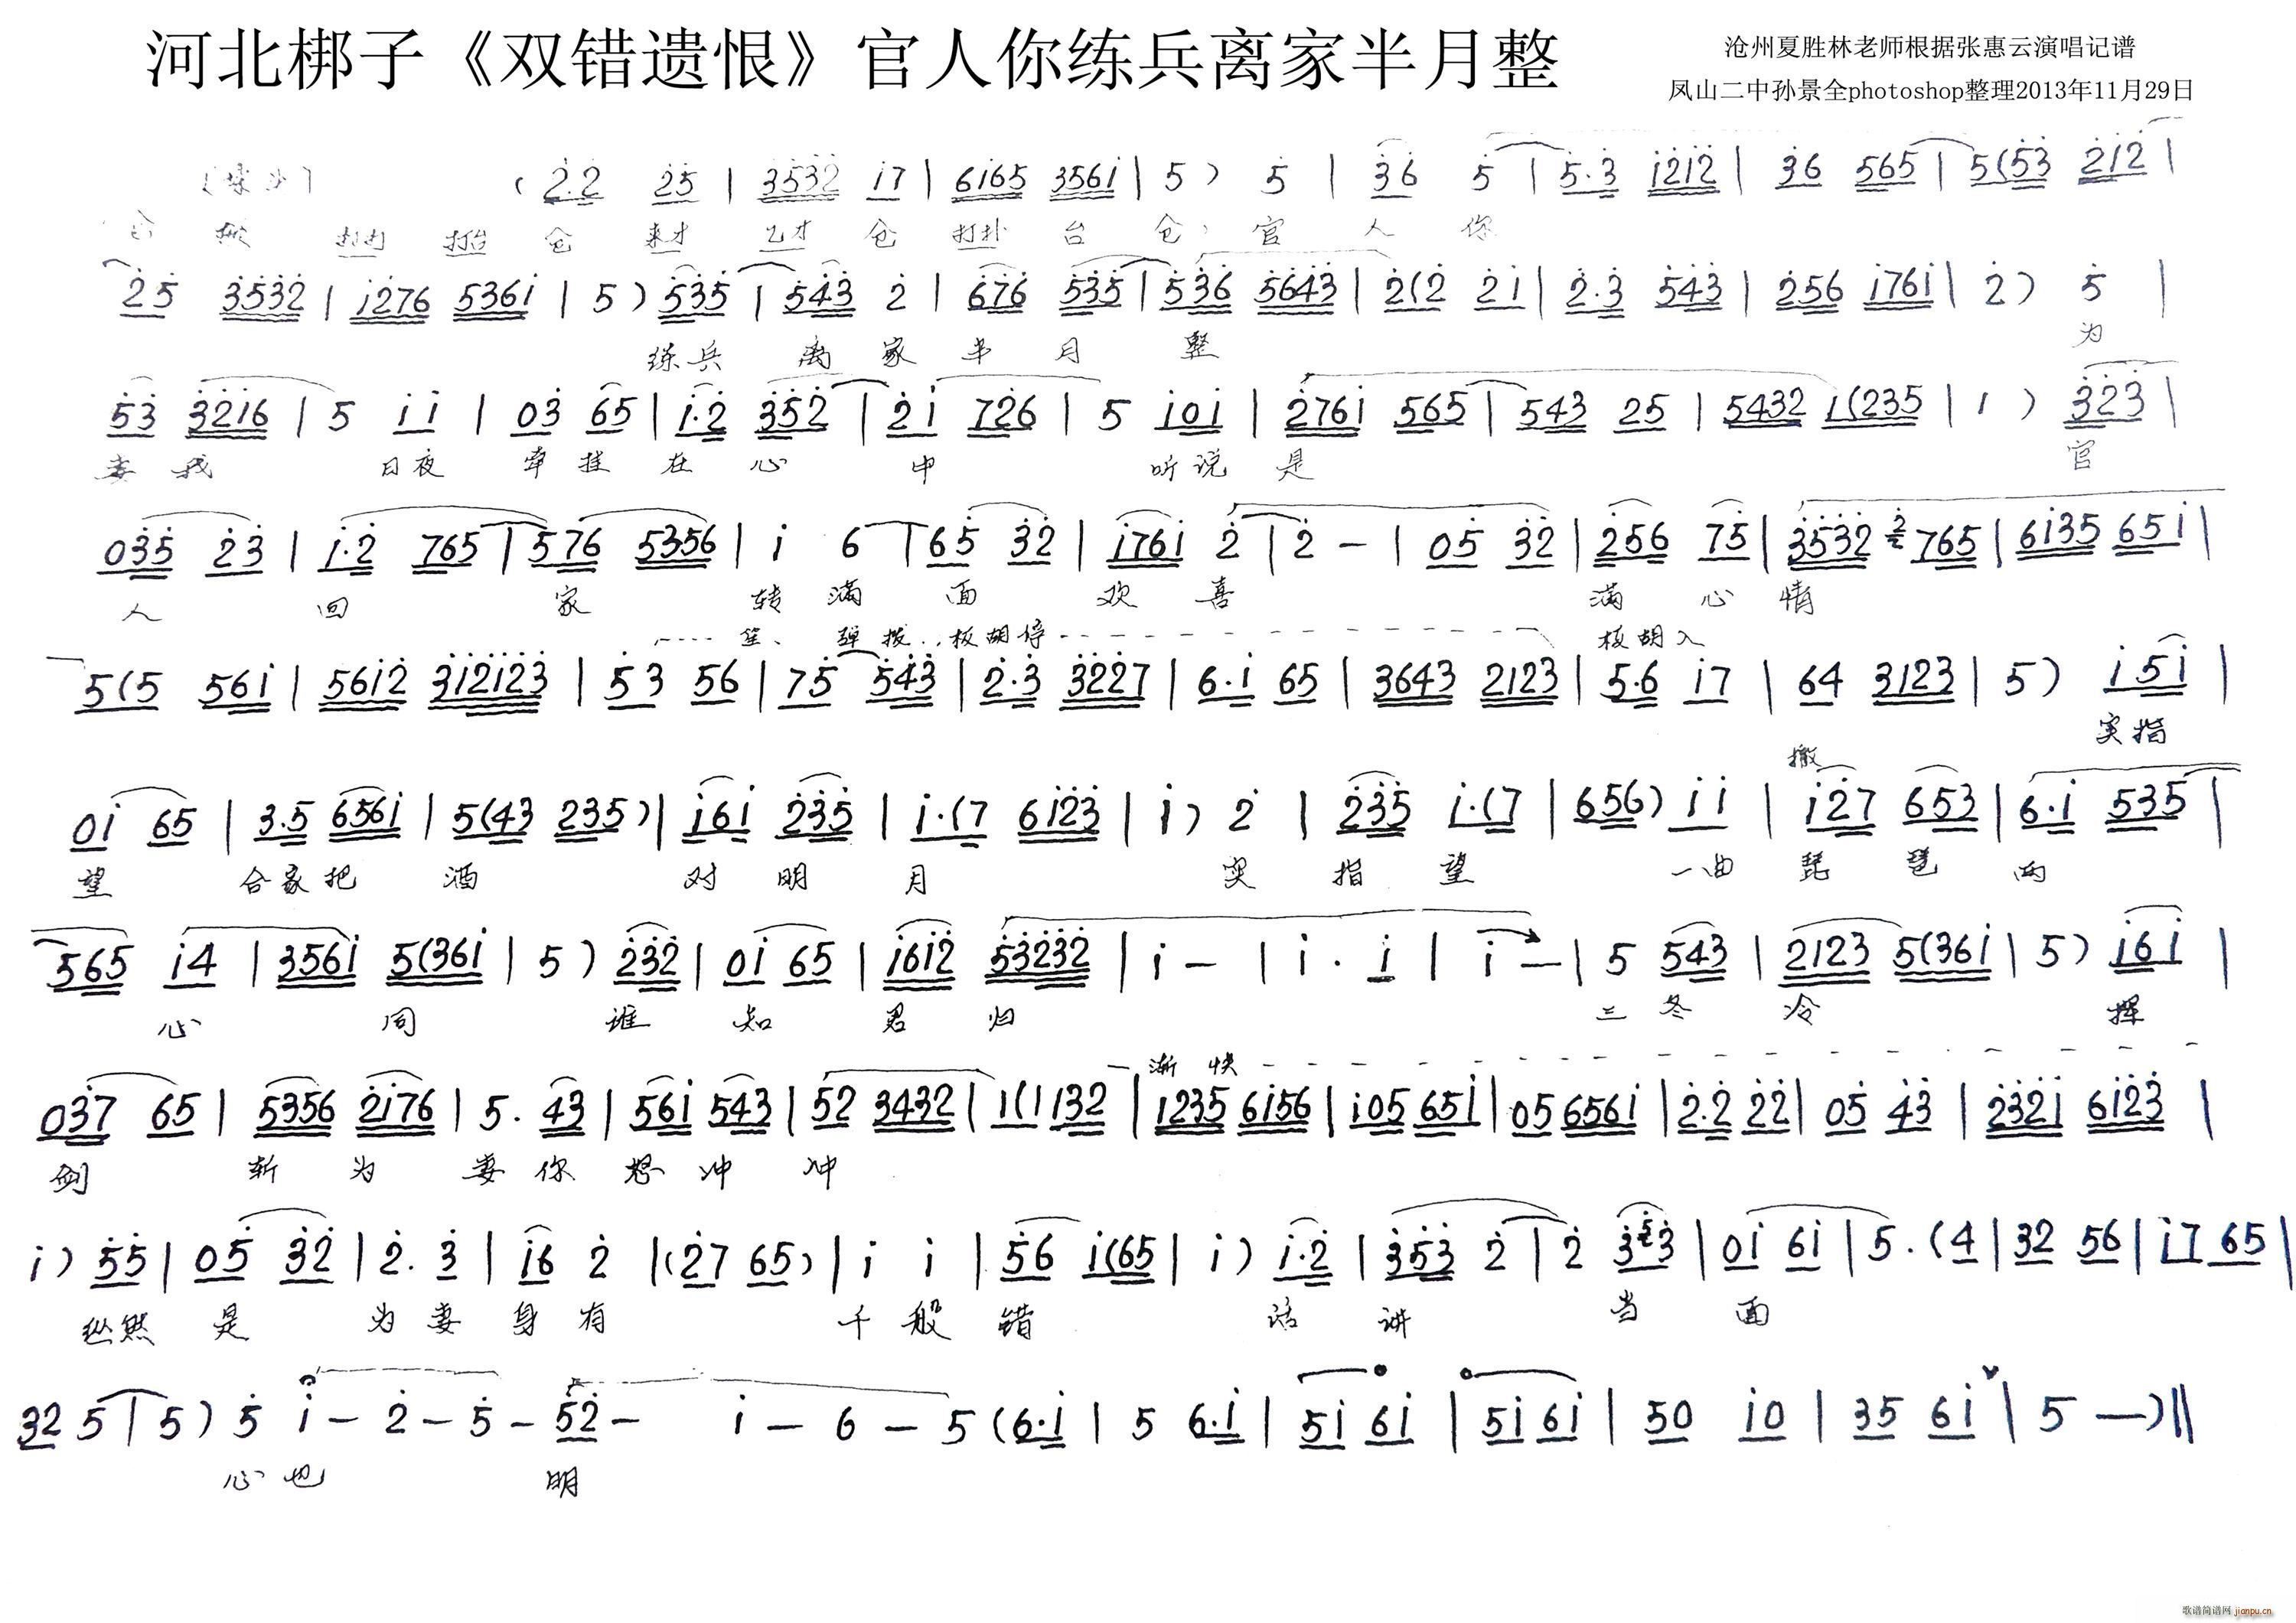 河北梆子《双错遗恨》官人你练兵离家半月整
沧州夏胜林老师根据张惠云演唱记谱
凤山二中孙景全photoshop整理2013年11月29日
( 2̇.2̇ 2̇5̇ | 3̇5̇3̇2̇ i7 | 6i65 356i | 5 ) 5̇ | 3̇6 5̇ | 5̇.3̇ i2̇i2̇ | 3̇6 565 | 5(5̇3̇ 2̇i2̇ |
打打 打台 仓 来才 乙才 仓 打扑 台 仓 官 人 你
2̇5̇ 3̇5̇3̇2̇ | i276 536i | 5 ) 5̇3̇5̇ | 5̇4̇3̇ 2̇ | 67̇6 5̇3̇5̇ | 5̇3̇6̇ 5̇6̇4̇3̇ | 2̇(2̇ 2̇i | 2̇.3̇ 5̇4̇3̇ | 2̇56 i76i | 2̇ ) 5̇ |
练兵 离 家 半 月 整 为
5̇3̇ 3̇2̇i6 | 5 i i | 03̇ 65 | i.2̇ 3̇5̇2̇ | 2̇i 72̇6 | 5 i0i | 2̇76i 565 | 543 25 | 5432 1(235 | 1 ) 3̇2̇3̇ |
妻 我 日夜 牵 挂 在 心 中 听说 是 官
03̇5̇ 2̇3̇ | i.2̇ 765 | 576 5356 | i 6 | 65̇ 3̇2̇ | i76i 2̇ | 2̇ - | 05̇ 3̇2̇ | 2̇56 75̇ | 3̇5̇3̇2̇ 765 | 6i35 65i |
人 回 家 转 满 面 欢 喜 满 心 情
笙、弹拨..板胡停 板胡入
5(5 56i | 56i2̇ 3̇i2̇i2̇3̇ | 5̇3 56 | 75̇ 5̇4̇3̇ | 2̇.3̇ 3̇2̇2̇7 | 6.i 65 | 3643 2123 | 5.6 i7 | 64 3123 | 5 ) i5̇i |
实指
撤
0i 65 | 3.5 656i | 5(43 235) | i6i 2̇3̇5̇ | i.(7 6i2̇3̇ | i ) 2̇ | 2̇3̇5̇ i.(7 | 656) i i | i2̇7 653 | 6.i 535 |
望 合家把 酒 对 明 月 实 指 望 一曲 琵 琶 两
565 i4 | 356i 5(36i | 5 ) 2̇3̇2̇ | 0i 65 | i6i2̇ 5̇3̇2̇3̇2̇ | i - | i . i | i — | 5 543 | 2123 5(36i | 5 ) i6i |
心 同 谁 知 君 归 三 冬 冷 挥
渐 快
03̇7 65 | 5356 2̇i76 | 5. 43 | 56i 543 | 52 3432 | 1(1 132 | 1235 6i56 | i05 65i | 05 656i | 2̇.2̇ 2̇2̇ | 05̇ 4̇3̇ | 2̇3̇2̇i 6i2̇3̇ |
剑 斩 为 妻 你 怒 冲 冲
i ) 5̇5̇ | 05̇ 3̇2̇ | 2̇. 3̇ | i6 2̇ | (2̇7 65) | i i | 5̇6 i(65 | i ) i.2̇ | 3̇5̇3̇ 2̇ | 2̇ 3̇3̇ | 0i 6i | 5. (4 | 32 56 | i7 65 |
纵然 是 为 妻 身 有 千 般 错 话 讲 当 面
32 5 | 5 ) 5̇ i - 2̇ - 5̇ - 5̇2̇ - i - 6 - 5 (6.i | 5 6.i | 5i 6i | 5i 6i | 50 i0 | 35 6i | 5 — )‖
心 也 明
歌谱简谱网 jianpu.cn